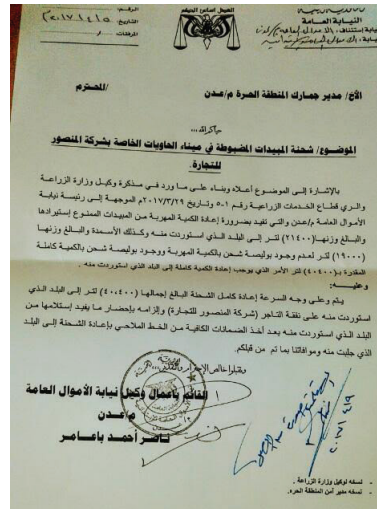 العدل أساس الحكم
النيابة العامة
الرقم:
التاريخ: ٢٠١٧/٤/٥م
المرفقات:
الأخ/ مدير جمارك المنطقة الحرة م/عدن /المحترم
الموضوع/ شحنة المبيدات المضبوطة في ميناء الحاويات الخاصة بشركة المنصور
للتجارة.
بالإشارة إلى الموضوع أعلاه وبناء على ما ورد في مذكرة وكيل وزارة الزراعة
والري قطاع الخدمات الزراعية رقم ٥٠١ وتاريخ ٢٠١٧/٣/٢٩م الموجهة إلى رئيسة نيابة
الأموال العامة م/عدن والتي تفيد بضرورة إعادة الكمية المهربة من المبيدات الممنوع إستيرادها
والبالغ وزنها(٢١٤٠٠) لتر إلى البلد الذي استوردت منه وكذلك الأسمدة والبالغ وزنها
(١٩٠٠٠) لتر لعدم وجود بوليصة شحن بالكمية المهربة ووجود بوليصة شحن بالكمية كاملة
المقدرة بـ(٤٠٤٠٠) لتر الأمر الذي يوجب إعادة الكمية كاملة إلى البلد الذي استوردت منه .
وعليه:
يتم وعلى وجه السرعة إعادة كامل الشحنة البالغ إجمالها (٤٠،٤٠٠) لتر إلى البلد الذي
استوردت منه على نفقة التاجر (شركة المنصور للتجارة) وإلزامه بإحضار ما يفيد إستلامها من
البلد الذي استوردت منه بعد أخذ الضمانات الكافية من الخط الملاحي بإعادة الشحنة إلى البلد
الذي جلبت منه وموافاتنا بما تم من قبلكم.
وتقبلوا خالص الإحترام والتقدير
القائم بأعمال وكيل نيابة الأموال العامة
م/عدن
ناصر أحمد باعامر
- نسخه لوكيل وزارة الزراعة .
- نسخه مدير أمن المنطقة الحره.